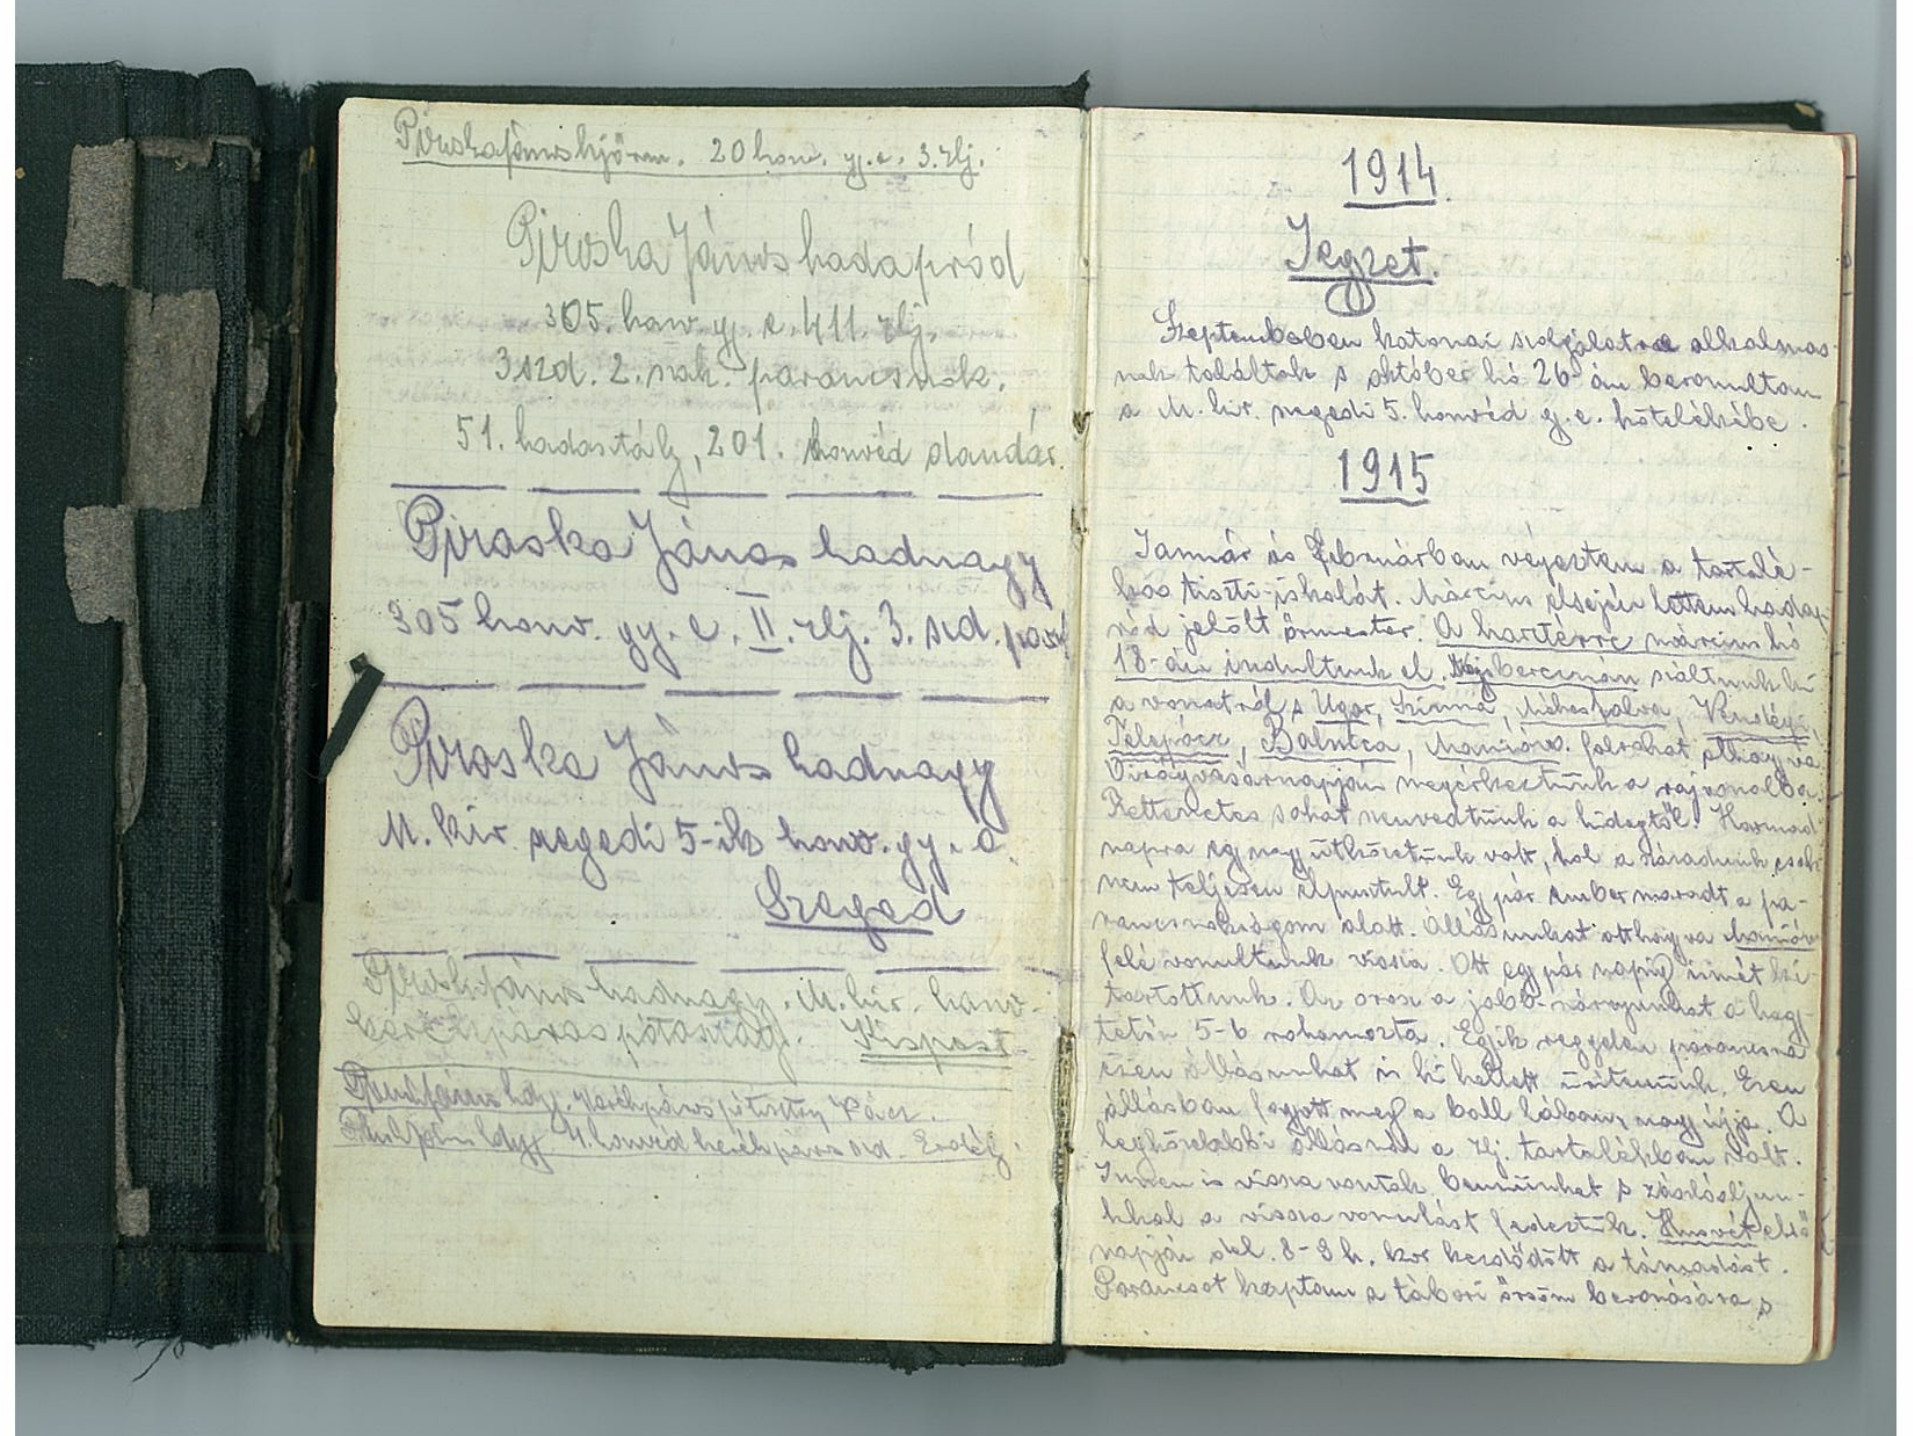 Piroska János hjörm. 20 honv. gy. e. 3. zlj.
Piroska János hadapród
305. honv. gy. e. 4 11. zlj.
3 szd. 2. szak. parancsnok.
51. hadosztály, 201. honvéd dandár.
Piroska János hadnagy
305 honv. gy. e. II. zlj. 3. szd. par.
Piroska János hadnagy
M. kir. szegedi 5-ik honv. gy. e.
Szeged
Piroska János hadnagy. M. kir. honv.
kerékpáros pótosztag. Kispest
Piroska János hdgy. kerékpáros pótosztag
Piroska János hdgy 4. honvéd kerékpáros szd. Erdély.
1914.
Jegyzet.
Szeptemberben katonai szolgálatra alkalmas-
nak találtak s október hó 26-án bevonultam
a M. kir. szegedi 5. honvéd gy. e. kötelékébe.
1915
Január és Februárban végeztem a tartalé-
kos tiszti-iskolát. Március elsején lettem hadap-
ród jelölt őrmester. A harctérre március hó
18-án indultunk el. szálltunk ki
a vonatról s Ugar, Szinna, Méhesfalva, Vendégi,
Telepócz, Balutca, Manióvo. falvakat elhagyva
Virágvasárnapján megérkeztünk a rajvonalba.
Rettenetes sokat szenvedtünk a hidegtől. Harmad
napra egy nagy ütközetünk volt, hol a századunk csak-
nem teljesen elpusztult. Egy pár ember maradt a pa-
rancsnokságom alatt. Állásunkat otthagyva Manióvo
felé vonultunk vissza. Ott egy pár napig ismét ki-
tartottunk. Az orosz a jobb-szárnyunkat a hegy-
tetőn 5-6 rohamozta. Egyik reggelen parancsra
ezen állásunkat is ki kellett ürítenünk. Ezen
állásban fagyott meg a ball lábam nagy újja. A
legközelebbi állásnál a zlj. tartalékban volt.
Innen is vissza vontak bennünket s zászlóaljun-
kkal a vissza vonulást fedeztük. Husvét első
napján del. 8-9 h. kor kezdődött a támadást.
Parancsot kaptam a tábori őrsöm bevonására s